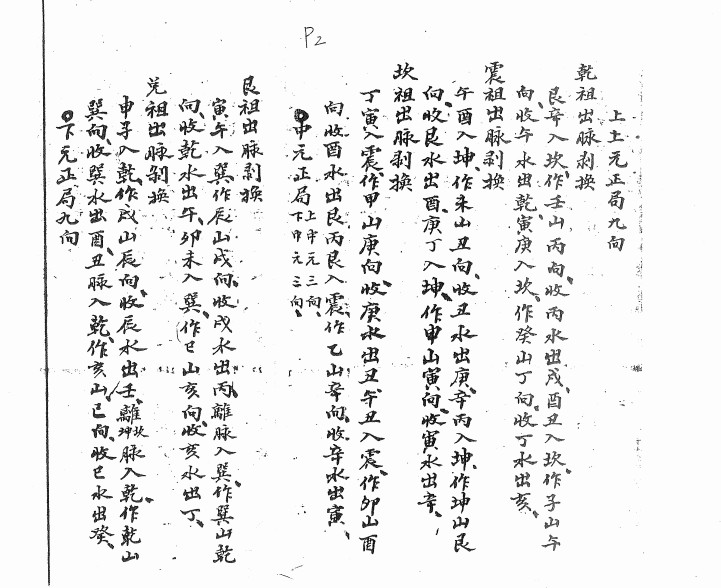 P2
上土元正局九向
乾祖出脉剥換
艮辛入坎、作壬山丙向、收丙水出戍、酉丑入坎、作子山午
向、收午水出乾、寅庚入坎、作癸山丁向、收丁水出亥、
震祖出脉剥換
午酉入坤、作未山丑向、收丑水出庚、辛丙入坤、作坤山艮
向、收艮水出酉、庚丁入坤、作申山寅向、收寅水出辛、
坎祖出脉剥換
丁寅入震、作甲山庚向、收庚水出丑、午丑入震、作卯山酉
向、收酉水出艮、丙艮入震、作乙山辛向、收辛水出寅、
中元正局 上中元三向、下中元三向、
艮祖出脉剥換
寅午入巽、作辰山戍向、收戍水出丙、離脉入巽、作巽山乾
向、收乾水出午、卯未入巽、作巳山亥向、收亥水出丁、
兌祖出脉剥換
申子入乾、作戍山辰向、收辰水出壬、離坎坤脉入乾、作乾山
巽向、收巽水出酉、丑脉入乾、作亥山巳向、收巳水出癸、
下元正局九向